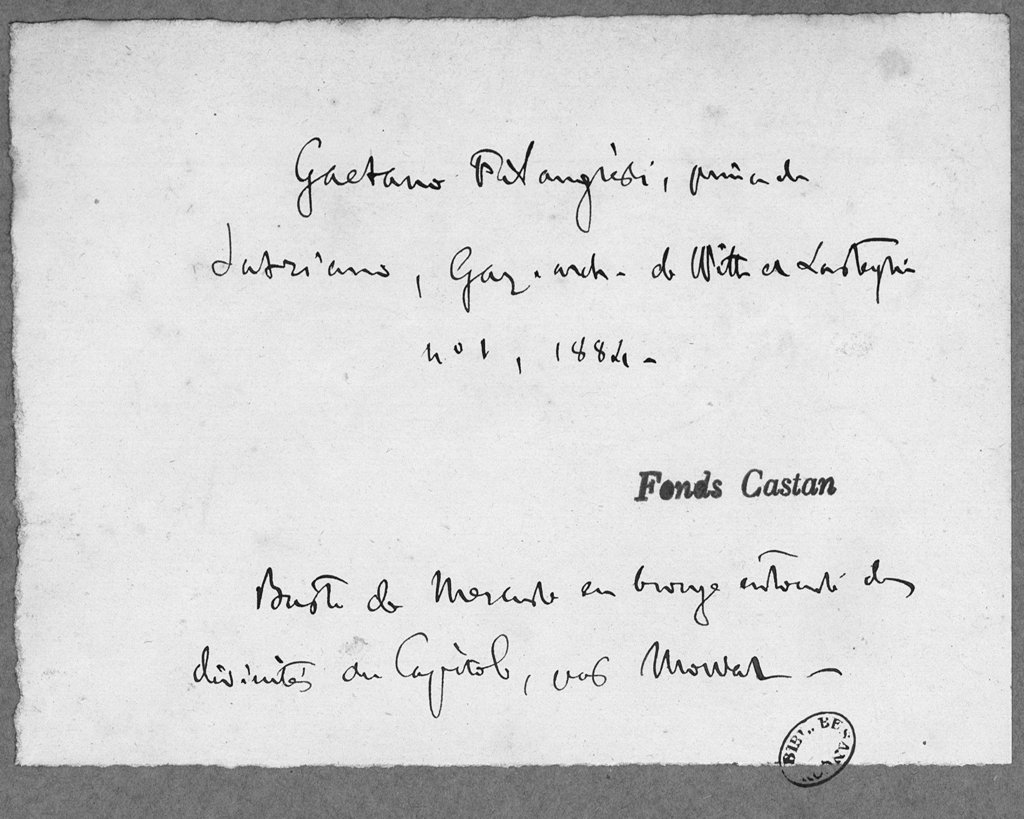 Gaetano Filangieri, prince de
Satriano, Gaz. arch. de Witte et Lasteyrie
no 1, 1884 -
Fonds Castan
Buste de Mercure en bronze entouré des
divinités du Capitole, par Mowat -
BIBL. BESANÇON